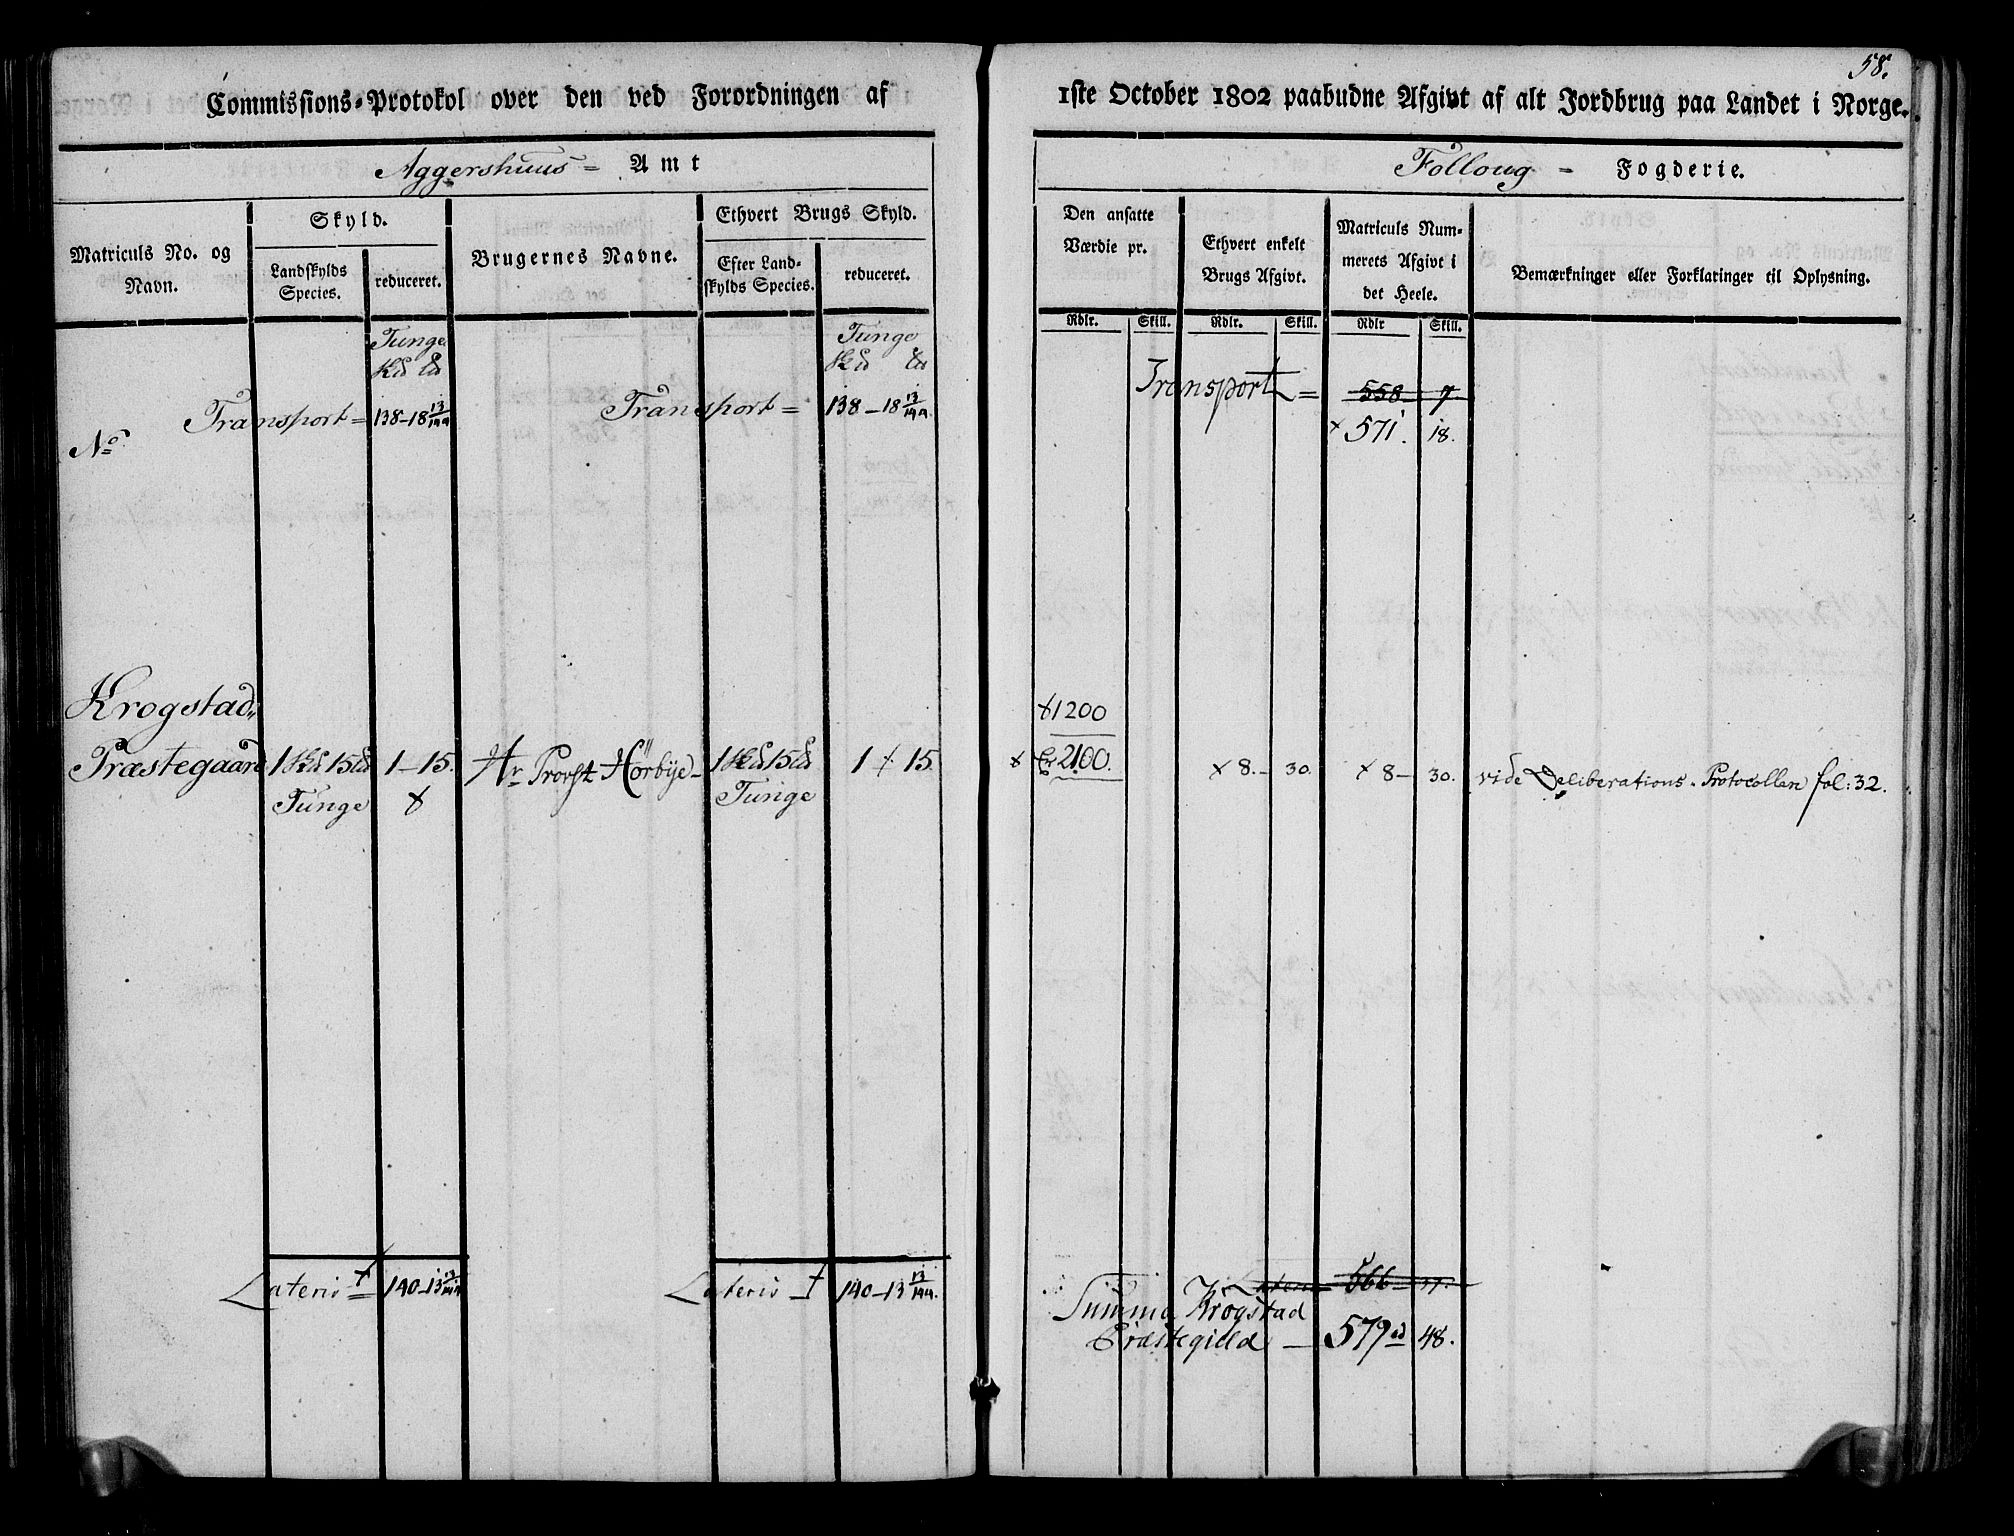 58.
Commissions-Protokol over den ved Forordningen af 1ste October 1802 paabudne Afgivt af alt Jordbrug paa Landet i Norge.
Aggershuus = Amt
Folloug = Fogderie.
Matriculs No. og Navn.
Skyld.
Landskylds Species.
reduceret.
Brugernes Navne.
Ethvert Brugs Skyld.
Efter Landskylds Species.
reduceret.
Den ansatte Værdie pr.
Ethvert enkelt Brugs Afgivt.
Matriculs Nummerets Afgivt i det Heele.
Bemærkninger eller Forklaringer til Oplysning.
Rdlr. Skill. Rdlr. Skill. Rdlr Skill.
Tunge Tunge
Transport = 138-18 13/144 Transport = 138-18 13/144. Transport = 558 7
× 571. 18.
No
Krogstad 1200
Præstegaard 1 15 1-15. Hr Provst Hörbye 1 15 1 15 × 2100. × 8.- 30. × 8- 30. vide Deliberations-Protocollen fol: 32.
Tunge Tunge
Lateris 140-13 13/144 Lateris 140-13 13/144. Lateris 566 37.
Summa Krogstad
Præstegield 579 48.